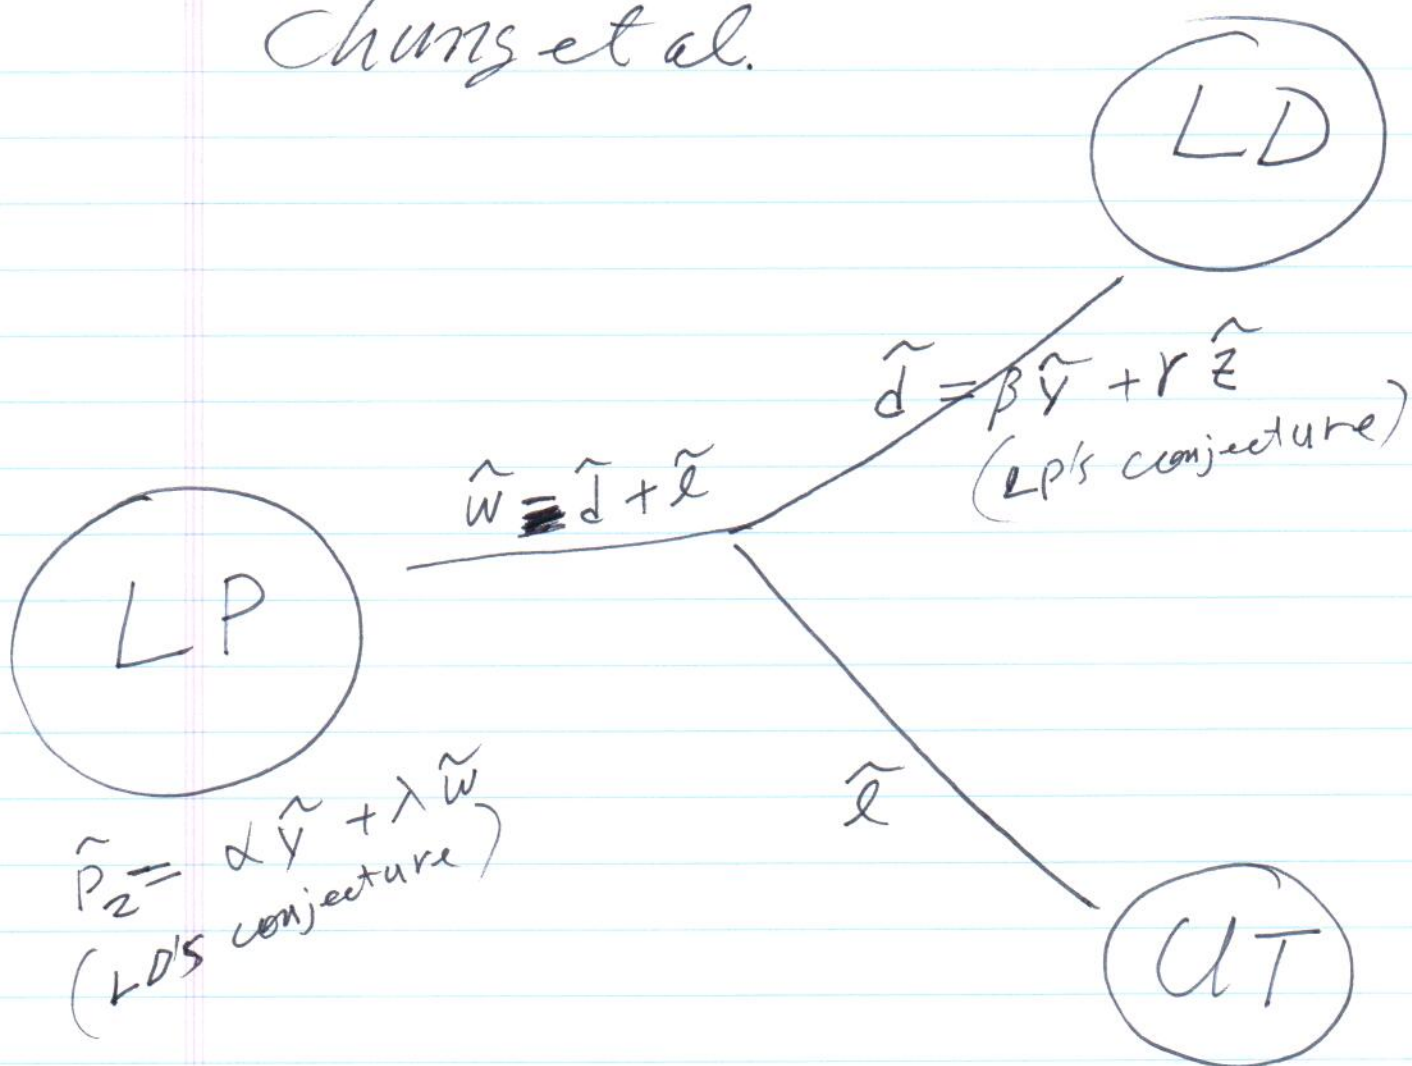 Chung et al.
LD
d̃ = βỹ + γz̃
(LP's conjecture)
w̃ = d̃ + l̃
LP
P̃₂ = αỹ + λw̃
(LD's conjecture)
l̃
UT